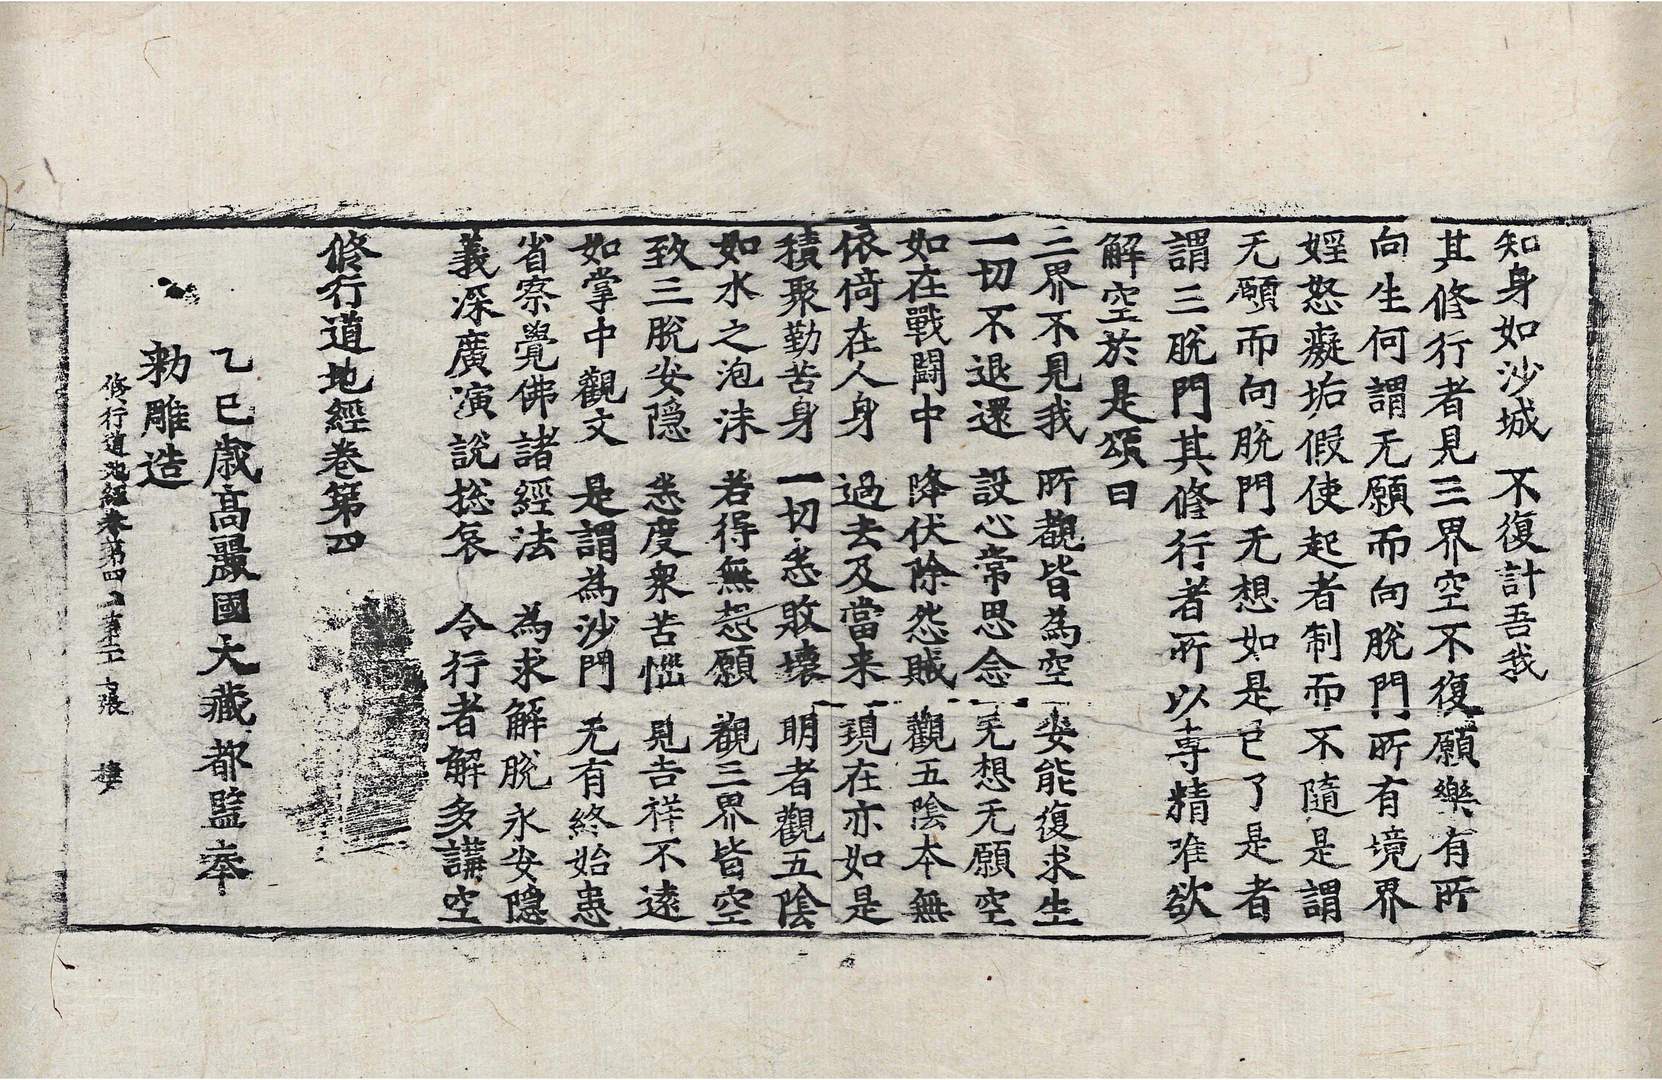 知身如沙城 不復計吾我
其修行者見三界空不復願樂有所
向生何謂无願而向脫門所有境界
婬怒癡垢假使起者制而不隨是謂
无願而向脫門无想如是已了是者
謂三脫門其修行者所以專精唯欲
解空於是頌曰
三界不見我 所觀皆為空 安能復求生
一切不退還 設心常思念 无想无願空
如在戰鬪中 降伏除怨賊 觀五陰本無
依倚在人身 過去及當来 現在亦如是
積聚勤苦身 一切悉敗壞 明者觀五陰
如水之泡沫 若得無想願 觀三界皆空
致三脫安隱 悉度衆苦惱 見吉祥不遠
如掌中觀文 是謂為沙門 无有終始患
省察覺佛諸經法 為求解脫永安隱
義深廣演說捴哀 令行者解多講空
修行道地經卷第四
乙巳歲高麗國大藏都監奉
勅雕造
修行道地經卷第四 張